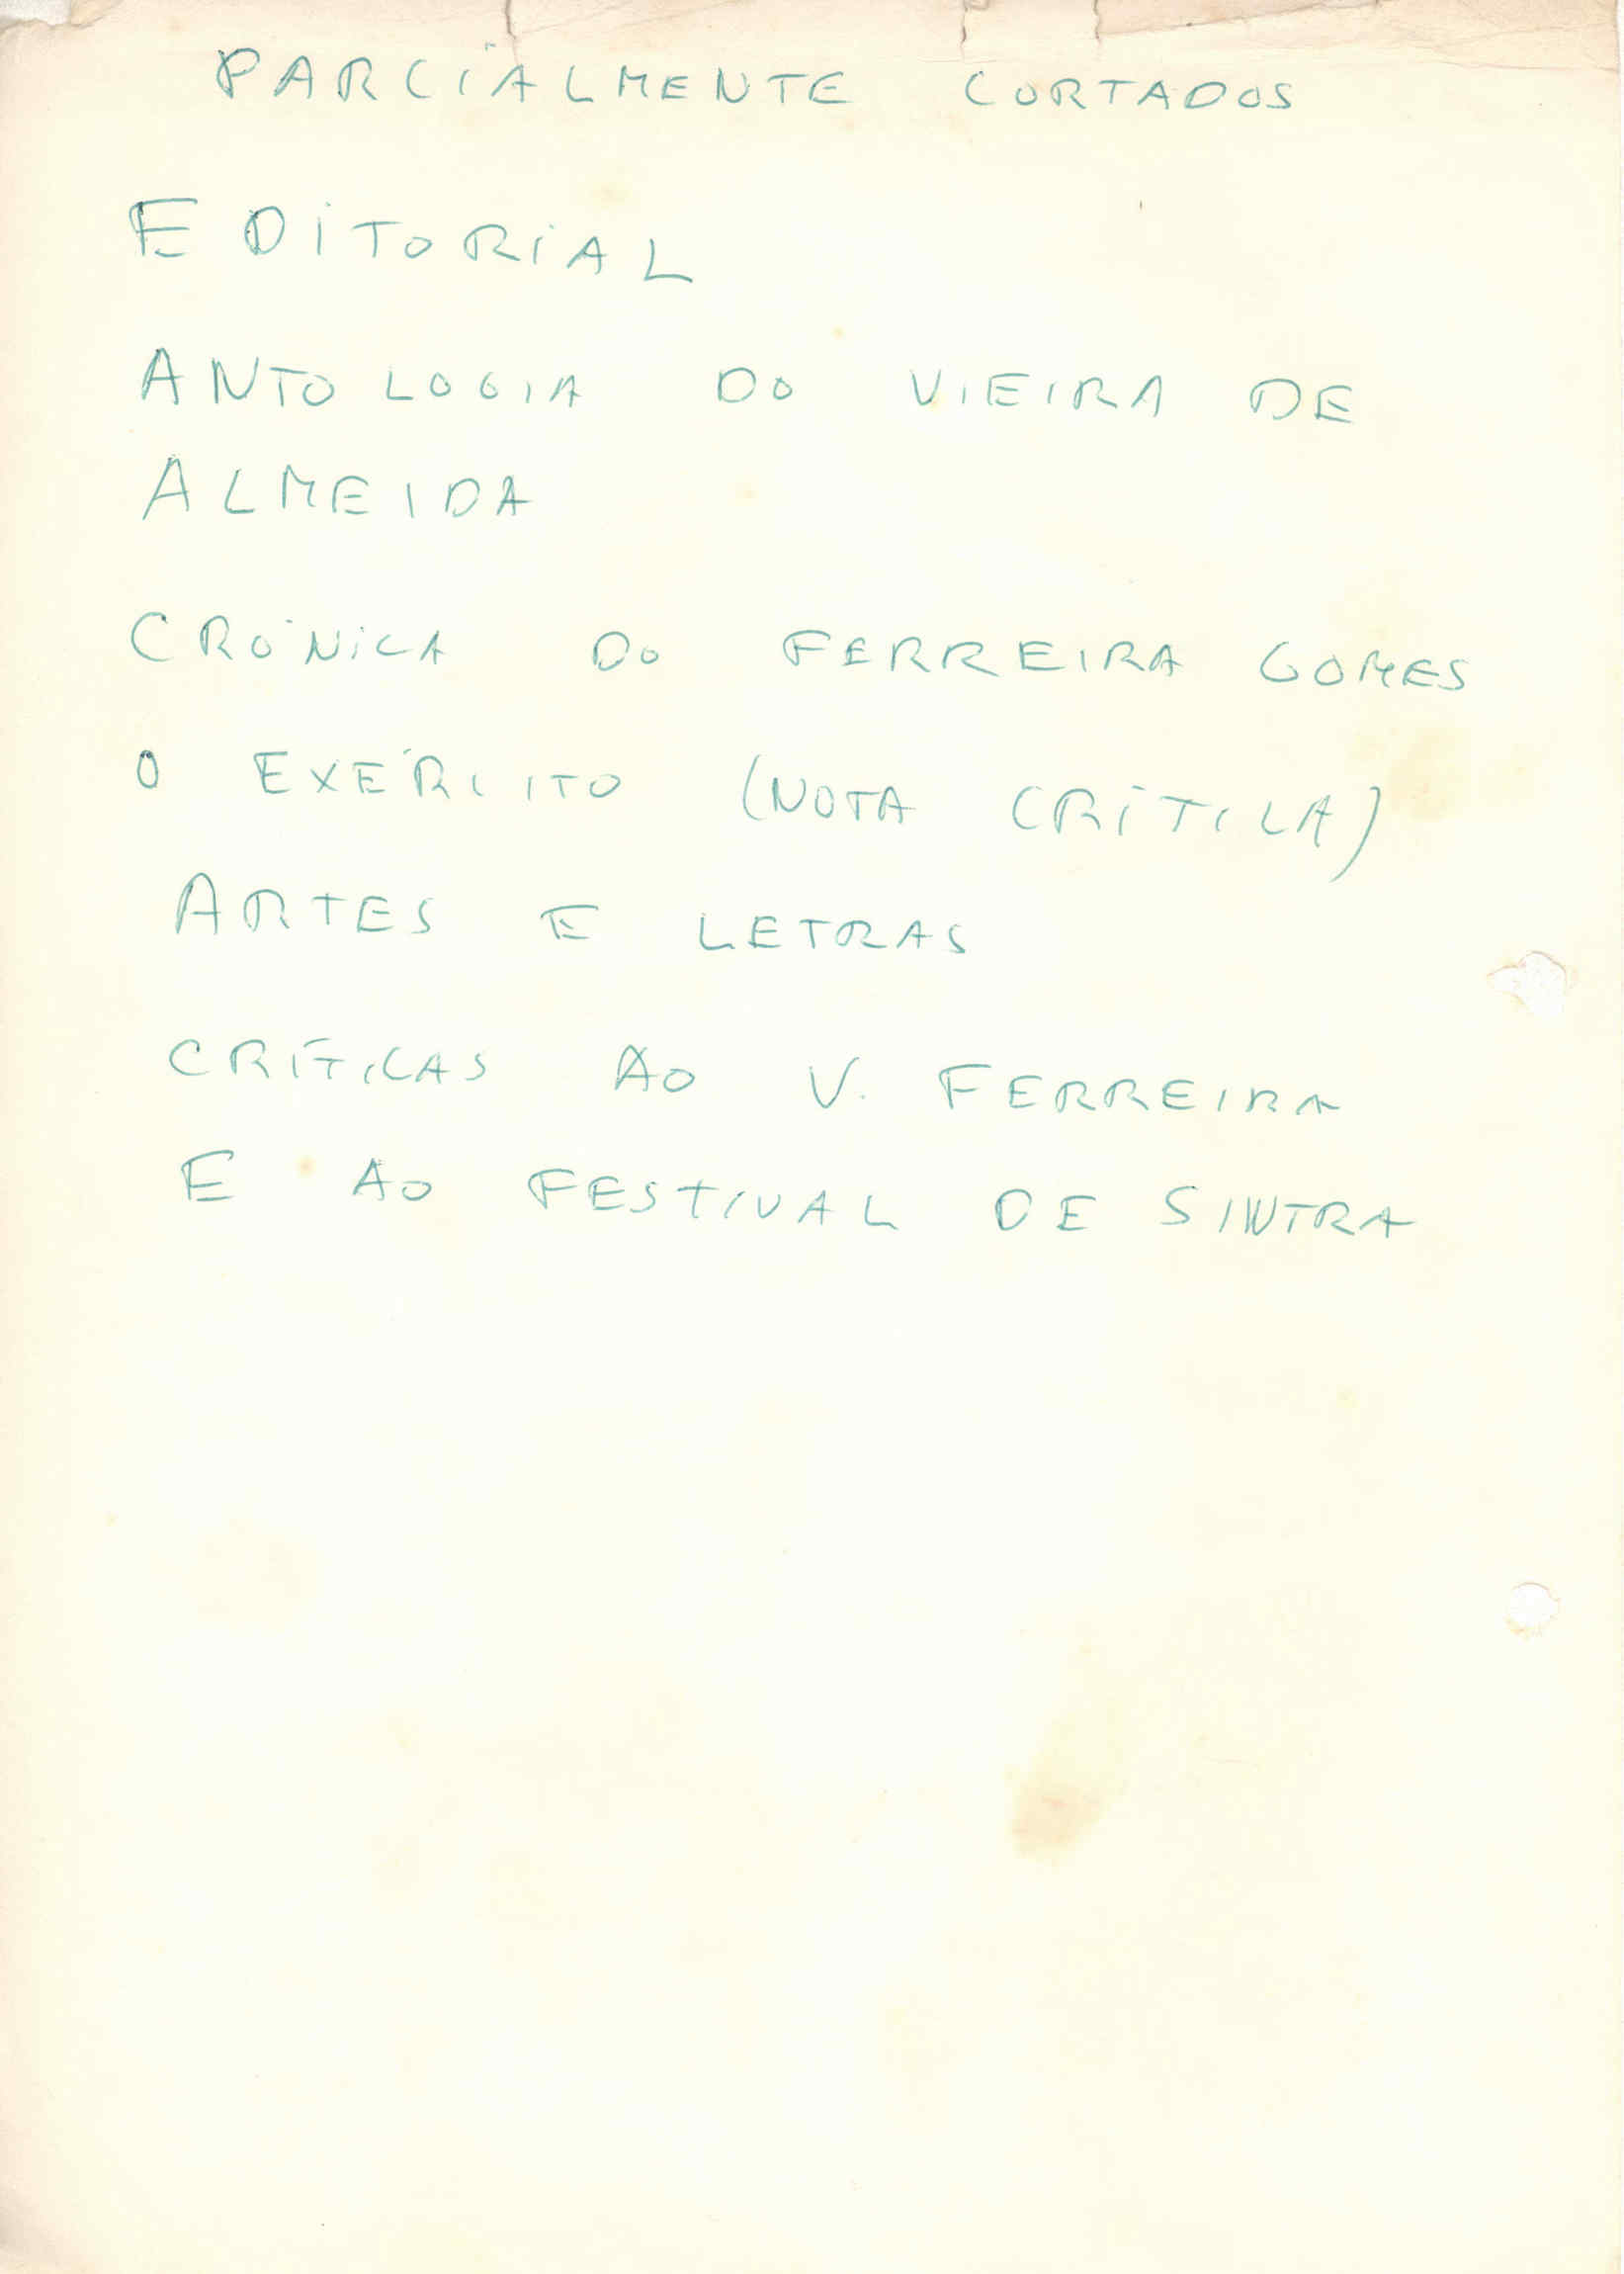 PARCIALMENTE CORTADOS
EDITORIAL
ANTOLOGIA DO VIEIRA DE
ALMEIDA
CRÓNICA DO FERREIRA GOMES
O EXÉRCITO (NOTA CRÍTICA)
ARTES E LETRAS
CRÍTICAS AO V. FERREIRA
E AO FESTIVAL DE SINTRA